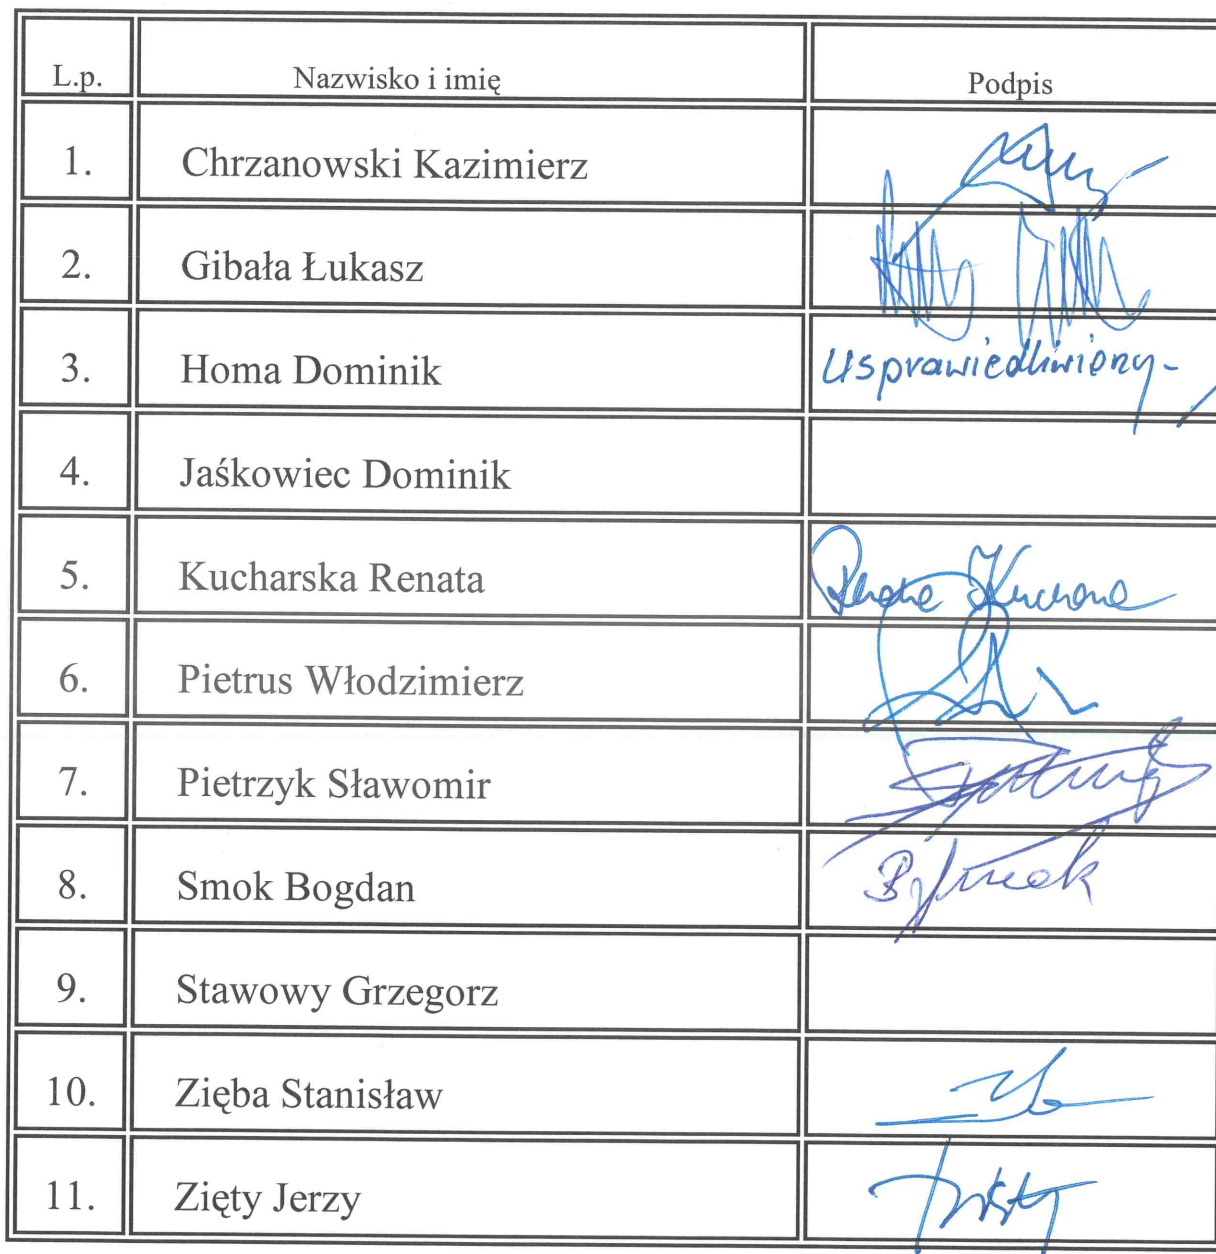 L.p. Nazwisko i imię Podpis
1. Chrzanowski Kazimierz
2. Gibała Łukasz
3. Homa Dominik Usprawiedliwiony
4. Jaśkowiec Dominik
5. Kucharska Renata
6. Pietrus Włodzimierz
7. Pietrzyk Sławomir
8. Smok Bogdan
9. Stawowy Grzegorz
10. Zięba Stanisław
11. Zięty Jerzy